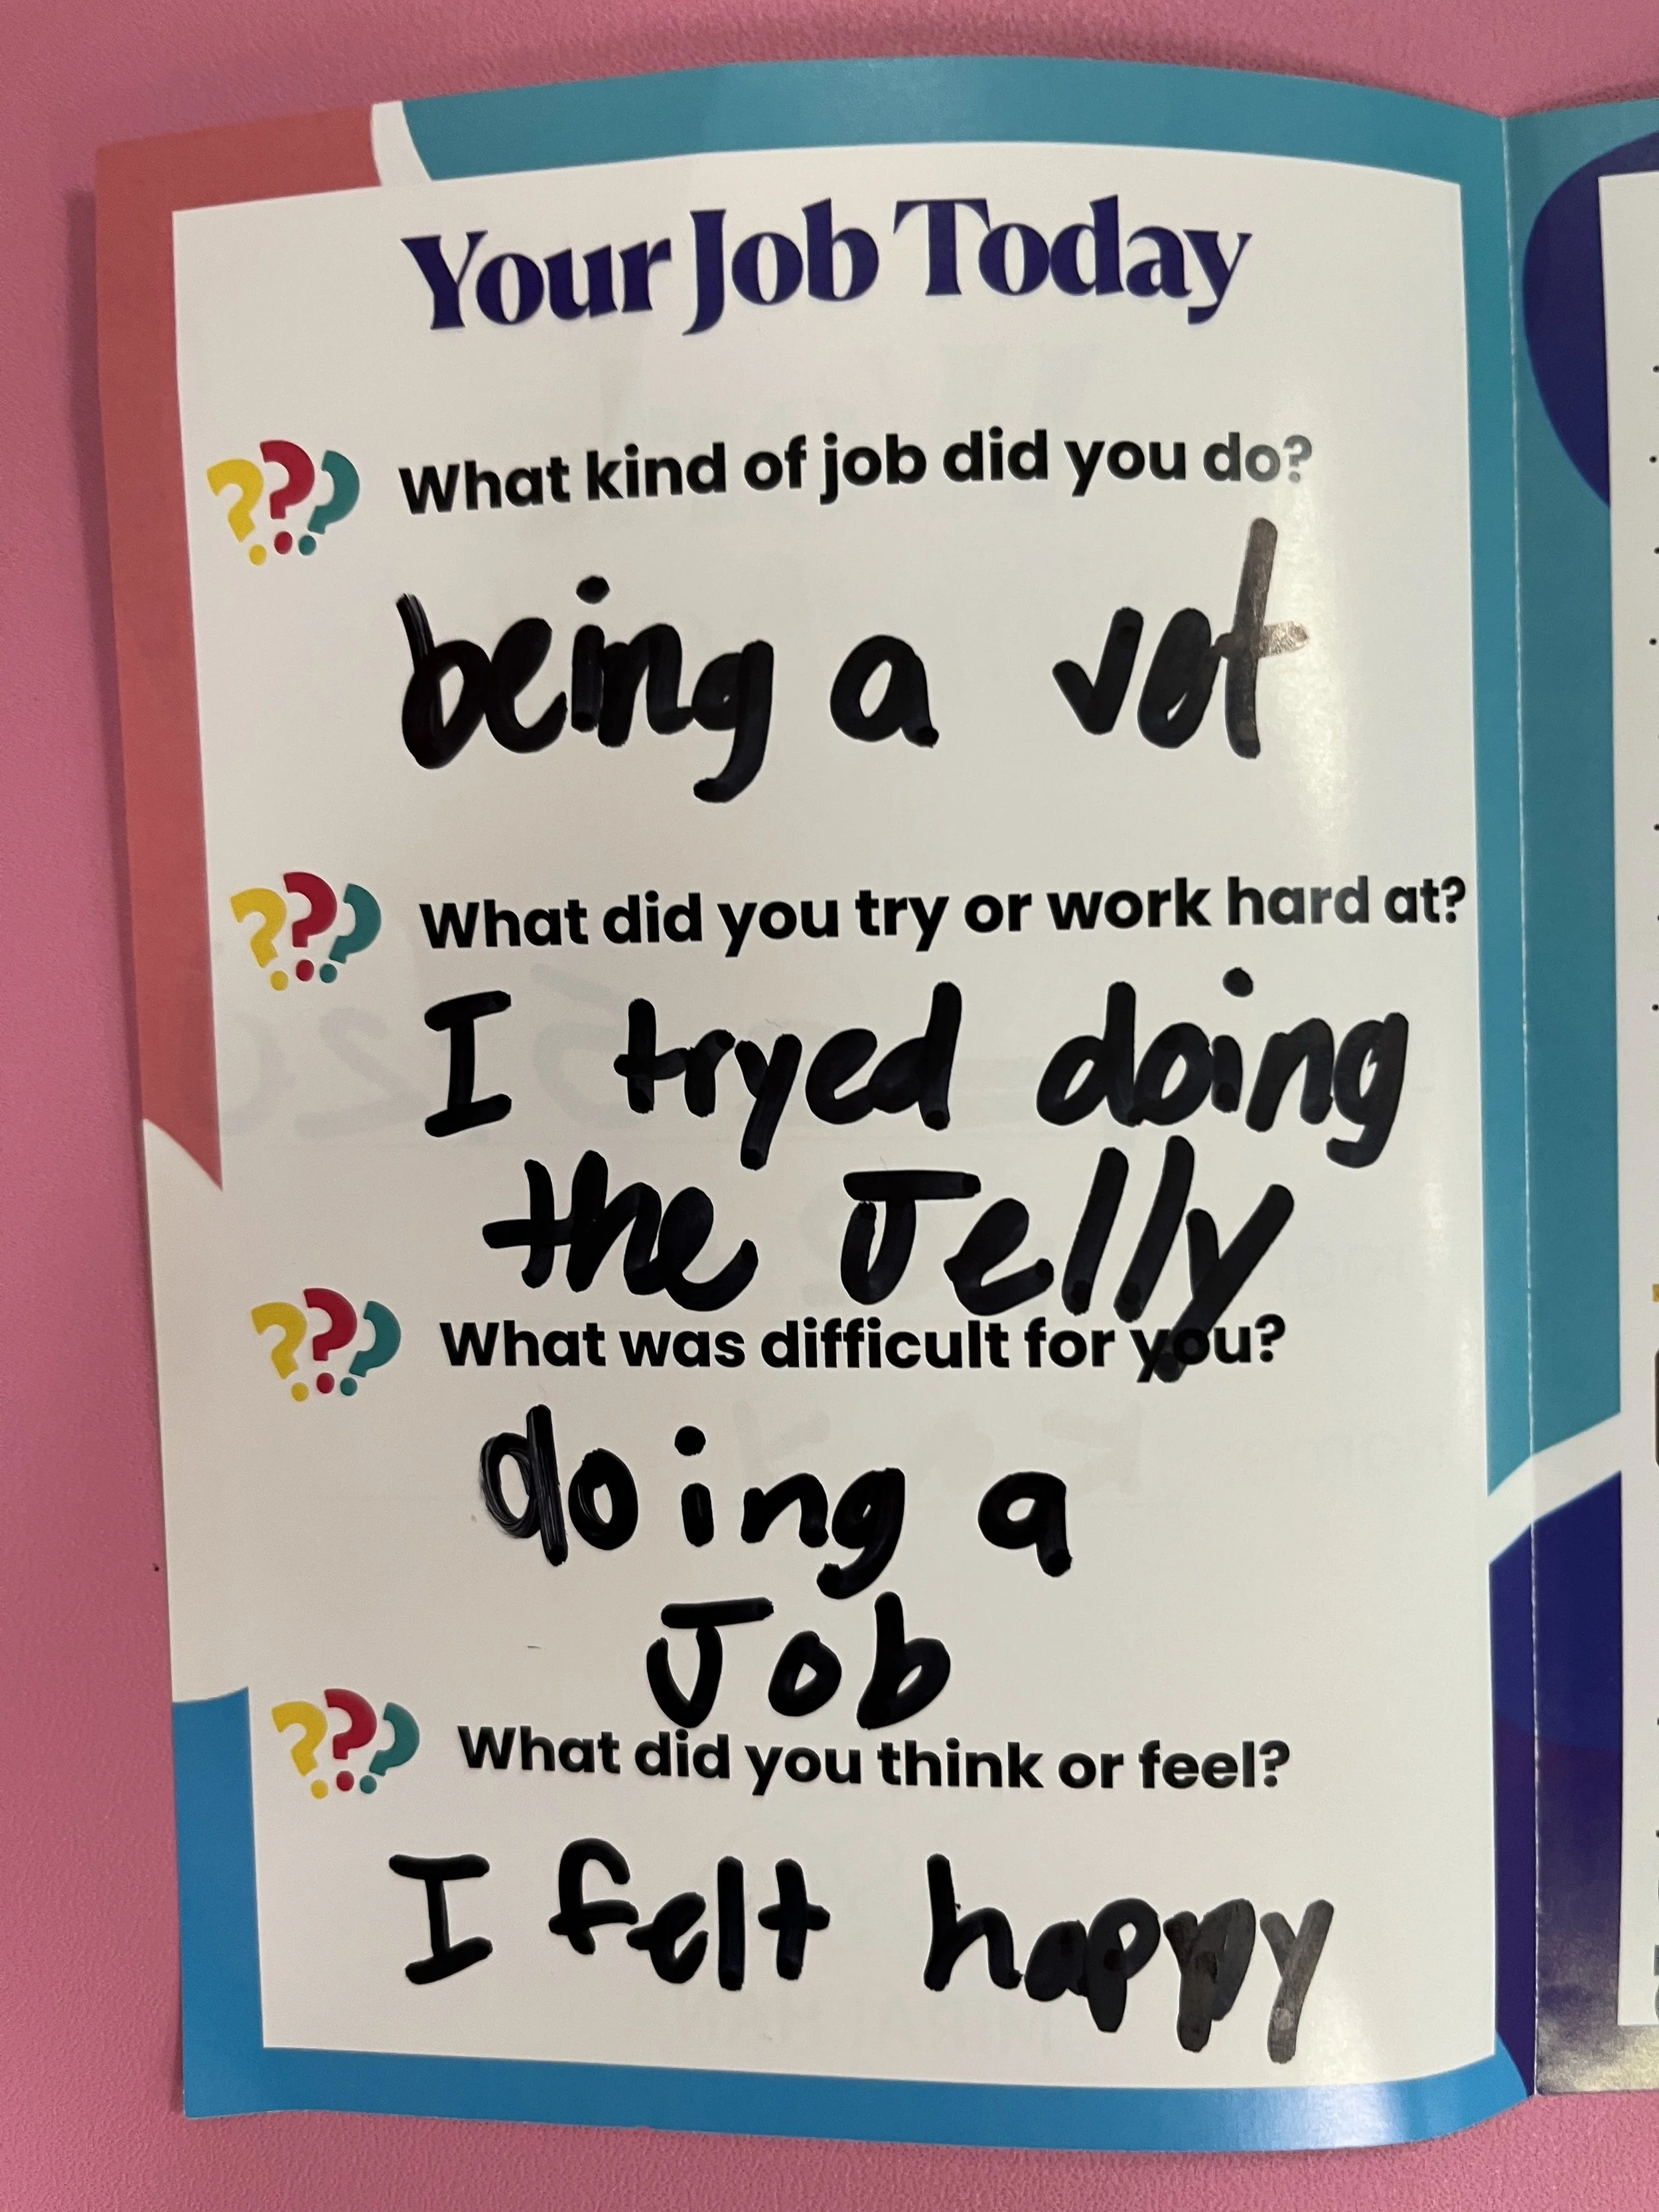 Your Job Today
What kind of job did you do?
being a vet
What did you try or work hard at?
I tryed doing
the Jelly
What was difficult for you?
doing a
Job
What did you think or feel?
I felt happy